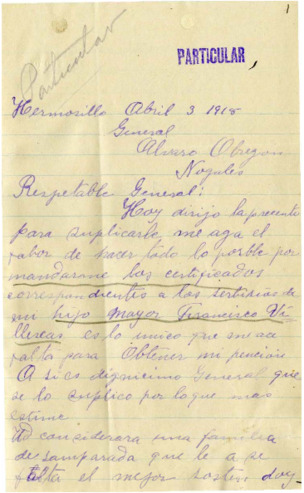 1
Particular
PARTICULAR,
Hermosillo Abril 3 1918
General
Alvaro Obregon
Nogales
Respetable General:
Hoy dirijo la presente
para suplicarle me aga el
fabor de hacer todo lo posble por
mandarame los certificados
correspondientes a los serbicios de
mi hijo Mayor Francisco Vi
llescas es lo unico que me aa
falta para Obtener mi pencion
A si es dignicimo General que
se lo suplico por lo que mas
estime
Ud considerara una familia
desamparada que le a se
falta el mejor sosten doy